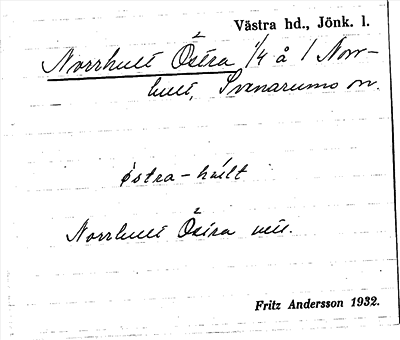 Västra hd., Jönk. l.
Norrhult Östra 1/4 å 1 Norr-
hult, Svenarums sn.
östra-hult
Norrhult Östra
Fritz Andersson 1932.